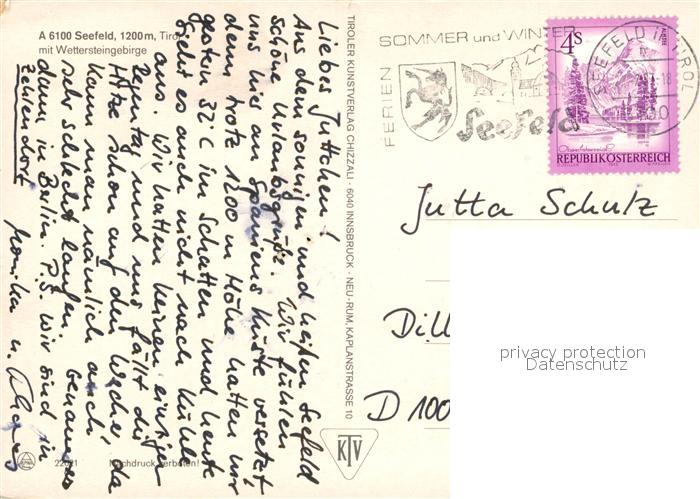 A 6100 Seefeld, 1200 m, Tirol
mit Wettersteingebirge
Liebes Juttchen!
Aus dem sonnigen und heißen Seefeld
schöne Urlaubsgrüße. Wir fühlen
uns wie an Spaniens Küste versetzt
denn trotz 1200 m Höhe hatten wir
gestern 32 C im Schatten und heute
sieht es auch nicht nach Kühle
aus. Wir hatten keinen einzigen
Regentag und uns fällt die
Hitze schon auf den Wecker, da
kann man nämlich auch
sehr schlecht laufen. Genaueres
dann in Berlin. P.S. Wir sind in
Zehlendorf
Monika u.
22021 Nachdruck verboten!
TIROLER KUNSTVERLAG CHIZZALI · 6040 INNSBRUCK · NEU-RUM, KAPLANSTRASSE 10
KTV
FERIEN
SOMMER und WINTER
Seefeld
SEEFELD IN TIROL
4 S
REPUBLIK ÖSTERREICH
Jutta Schulz
Dill
D 100
privacy protection
Datenschutz